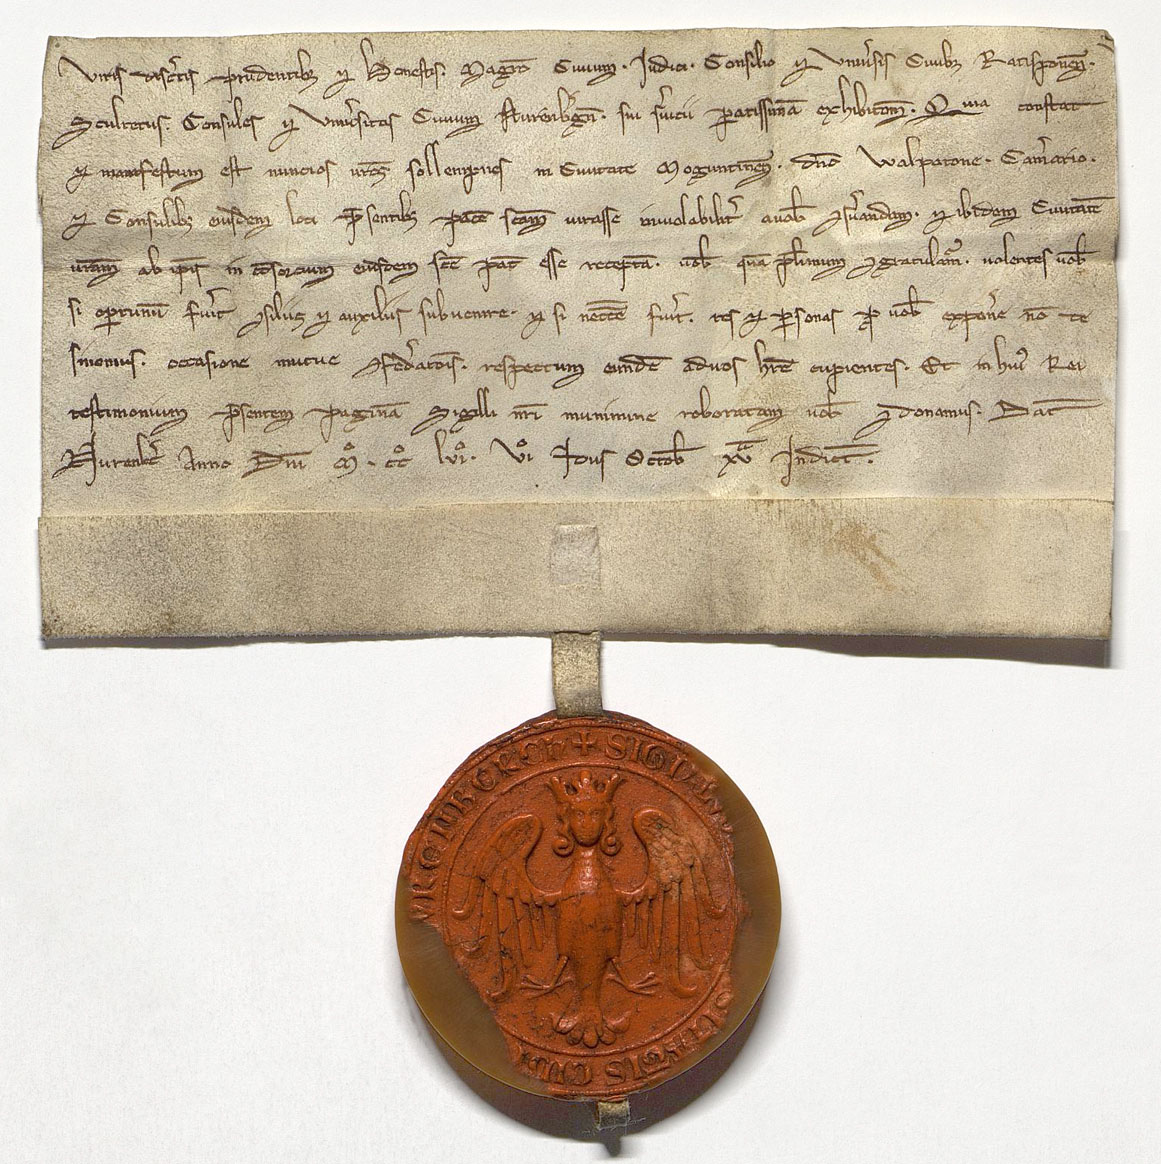 Viris discretis prudentibz et Honestis. Magro Civium. Iudici. Consilio et Vniuersis Ciuibz Ratisponen.
Scultetus. Consules et Vniuersitas Ciuium Nurenbergen. sui seruicii paratissimam exhibitionem. Quia constat
et manifestum est nuncios vros sollempnes in Ciuitate Moguntinen. dno Walpotone. Camerario.
et Consulibz eiusdem loci presentibz pacem scam iurasse inuiolabiliter a uob conseruandam. et ibidem Ciuitate
uram ab ipis in consorcium eiusdem sce pac esse receptam. uob quam plurimum congratulamur. uolentes uob
si oportunum fuerit consiliis et auxiliis subuenire. et si necce fuerit. res et personas pro uob exponere non de
sinimus. occasione mutue confederacois. respectum eundem ad uos habere cupientes. Et in huius Rei
testimonium presentem paginam Sigilli nri munimine roboratam uob condonamus. Dat
Nurenberc Anno Dni Mo. CCo lvio. vio Idus Octob xv Indictione.
+ SIGILLV TATIS CIVI VRENBERCH